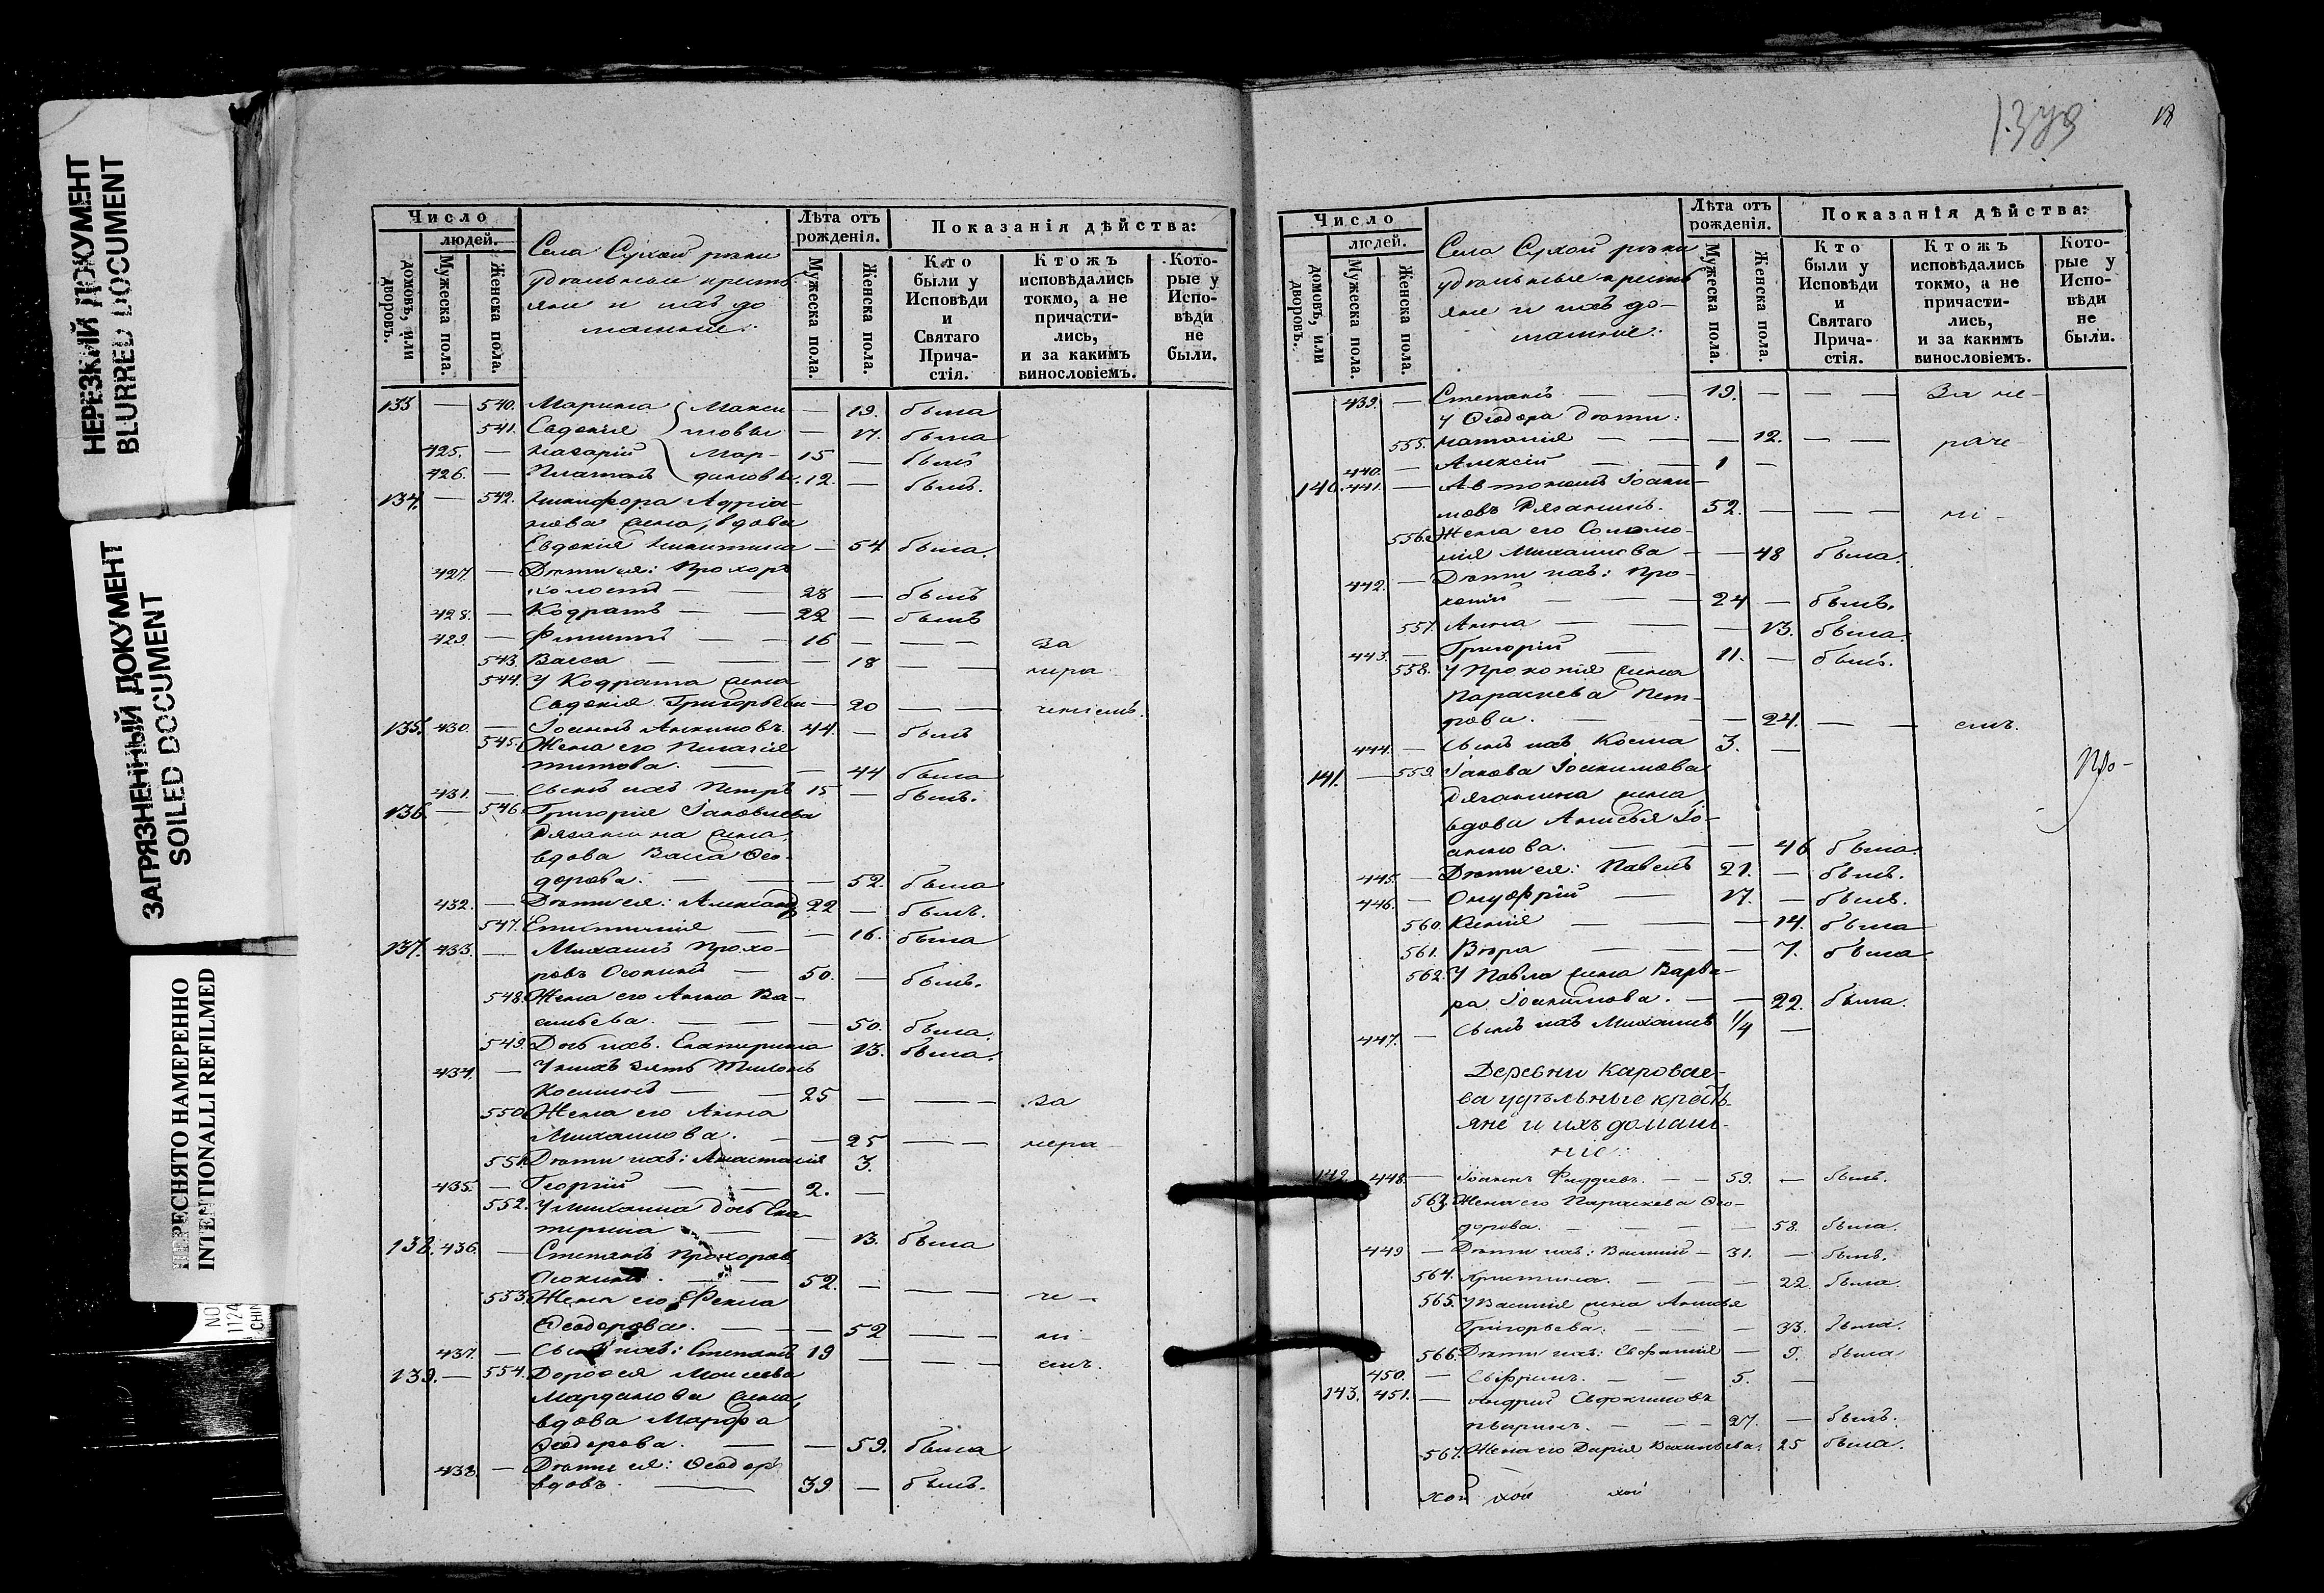 НЕРЕЗКИЙ ДОКУМЕНТ
BLURRED DOCUMENT
ЗАГРЯЗНЕННЫЙ ДОКУМЕНТ
SOILED DOCUMENT
ПЕРЕСНЯТО НАМЕРЕННО
INTENTIONALLI REFILMED
NO
1124
CHIN
Число
людей.
домовъ, или дворовъ.
Мужеска пола.
Женска пола.
Села Сухой рѣки
удѣльные кресть
яне и ихъ до
машніе:
Лѣта отъ рожденія.
Мужеска пола.
Женска пола.
Показанія дѣйства:
Кто были у Исповѣди и Святаго Прича-стія.
Ктожъ исповѣдались токмо, а не причасти-лись, и за какимъ винословіемъ.
Кото-рые у Испо-вѣди не были.
133 — 540. Марина Макси — 19. была
541. Евдокія мовы — 17. была
425. — Назарій Мар- 15 — былъ
426. — Платонъ диновы. 12. — былъ.
134. — 542. Никифора Адріа-
нова жена, вдова
Евдокія Никитина — 54 была.
427. — Дѣти ея: Прохоръ
холостъ — 28 — былъ
428. — Кодратъ — — 22 — былъ
429. — Филиппъ — — 16 — — — за
543. Васса — — — 18 — — нера
544. У Кодрата жена
Евдокія Григорьева — 20 — — ченіемъ.
135. 430. — Іоаннъ 44. — былъ
545. Жена его Пелагія
Титова. — — 44 была
431. — Сынъ ихъ Петръ 15 — былъ.
136. — 546. Григорія Іаковлева
Рязанина жена
вдова Васса Ѳео-
дорова. — — 52. была
432. — Дѣти ея: Александръ 22 — былъ.
547. Епистимія — — 16. была
137. 433. — Михаилъ Прохо-
ровъ Осокинъ — 50. — былъ.
548. Жена его Анна Ва-
сильева. — — — 50. была.
549. Дочь ихъ. Екатерина 13. была.
434. — У нихъ зять
— 25 — — — за
550. Жена его Анна
Михаилова. — — 25 — — нера
551. Дѣти ихъ: Анастасія 3.
435. — Георгій — — 2. —
552. У Михаила дочь Ека-
терина — — 13. была
138. 436. — Стефанъ Прохоровъ
Осокинъ. — — 52. — — — че —
553. Жена его Ѳекла
Ѳеодорова. — — — 52 — — ні
437. — Сынъ ихъ: Степанъ 19 — — — емъ.
139. — 554. Дороѳея Моисеева
Марданова жена,
вдова Марфа
Ѳеодорова. — — 59. была
438. — Дѣти ея: Ѳеодоръ
вдовъ. — 39 — былъ.
18
Число
людей.
домовъ, или дворовъ.
Мужеска пола.
Женска пола.
Села Сухой рѣки
удѣльные кресть
яне и ихъ до-
машніе:
Лѣта отъ рожденія.
Мужеска пола.
Женска пола.
Показанія дѣйства:
Кто были у Исповѣди и Святаго Прича-стія.
Ктожъ исповѣдались токмо, а не причасти-лись, и за какимъ винословіемъ.
Кото-рые у Испо-вѣди не были.
439. — Степанъ — — 19. — — — За не-
У Ѳеодора дѣти:
555. Наталія — — — 12. — — раче-
440. — Алексій — — 1 —
140. 441. — Автономъ Іоаки-
мовъ Рязанинъ. 52. — — — ні-
556. Жена его Соломо-
нія Михаилова — — 48 была.
442. — Дѣти ихъ: Про-
копій — — — 24 — былъ.
557. Анна — — — 13. была.
443. — Григорій — 11. — былъ.
558. У Прокопія жена
Параскева Пет-
рова. — — — 24. — — емъ.
444. — Сынъ ихъ Косма 3. —
141. — 559. Іакова Іоакимова
Рязанина жена,
вдова Анисья Іо-
аннова. — — — 46 была.
445. — Дѣти ея: Павелъ 21. — былъ.
446. — Онуфрій — 17. — былъ.
560. Ксенія — — — 14. была
561. Вѣра — — — 7. была
562. У Павла жена Варва-
ра Іоакимова. — — 22. была.
447. — Сынъ ихъ Михаилъ 1/4 —
Про-
Деревни Каровае-
ва удѣльные кресть-
яне и ихъ домаш-
ніе:
142. 448. — Іоаннъ Фаддеевъ. — — 59. — былъ.
563. Жена его Параскева Ѳео-
дорова. — — — — 58. была.
449 — Дѣти ихъ: Василій — 31. — былъ.
564. Христина. — — — 22. была.
565. У Василія жена Анисья
Григорьева. — — — 33. была.
566. Дѣти ихъ: Евфимія — 9. была
450. — Ефремъ. — — 5. —
143. 451. — Андрей Евдокимовъ
— — — 27. — былъ.
567. Жена его Дарія Васильева. 25 была.